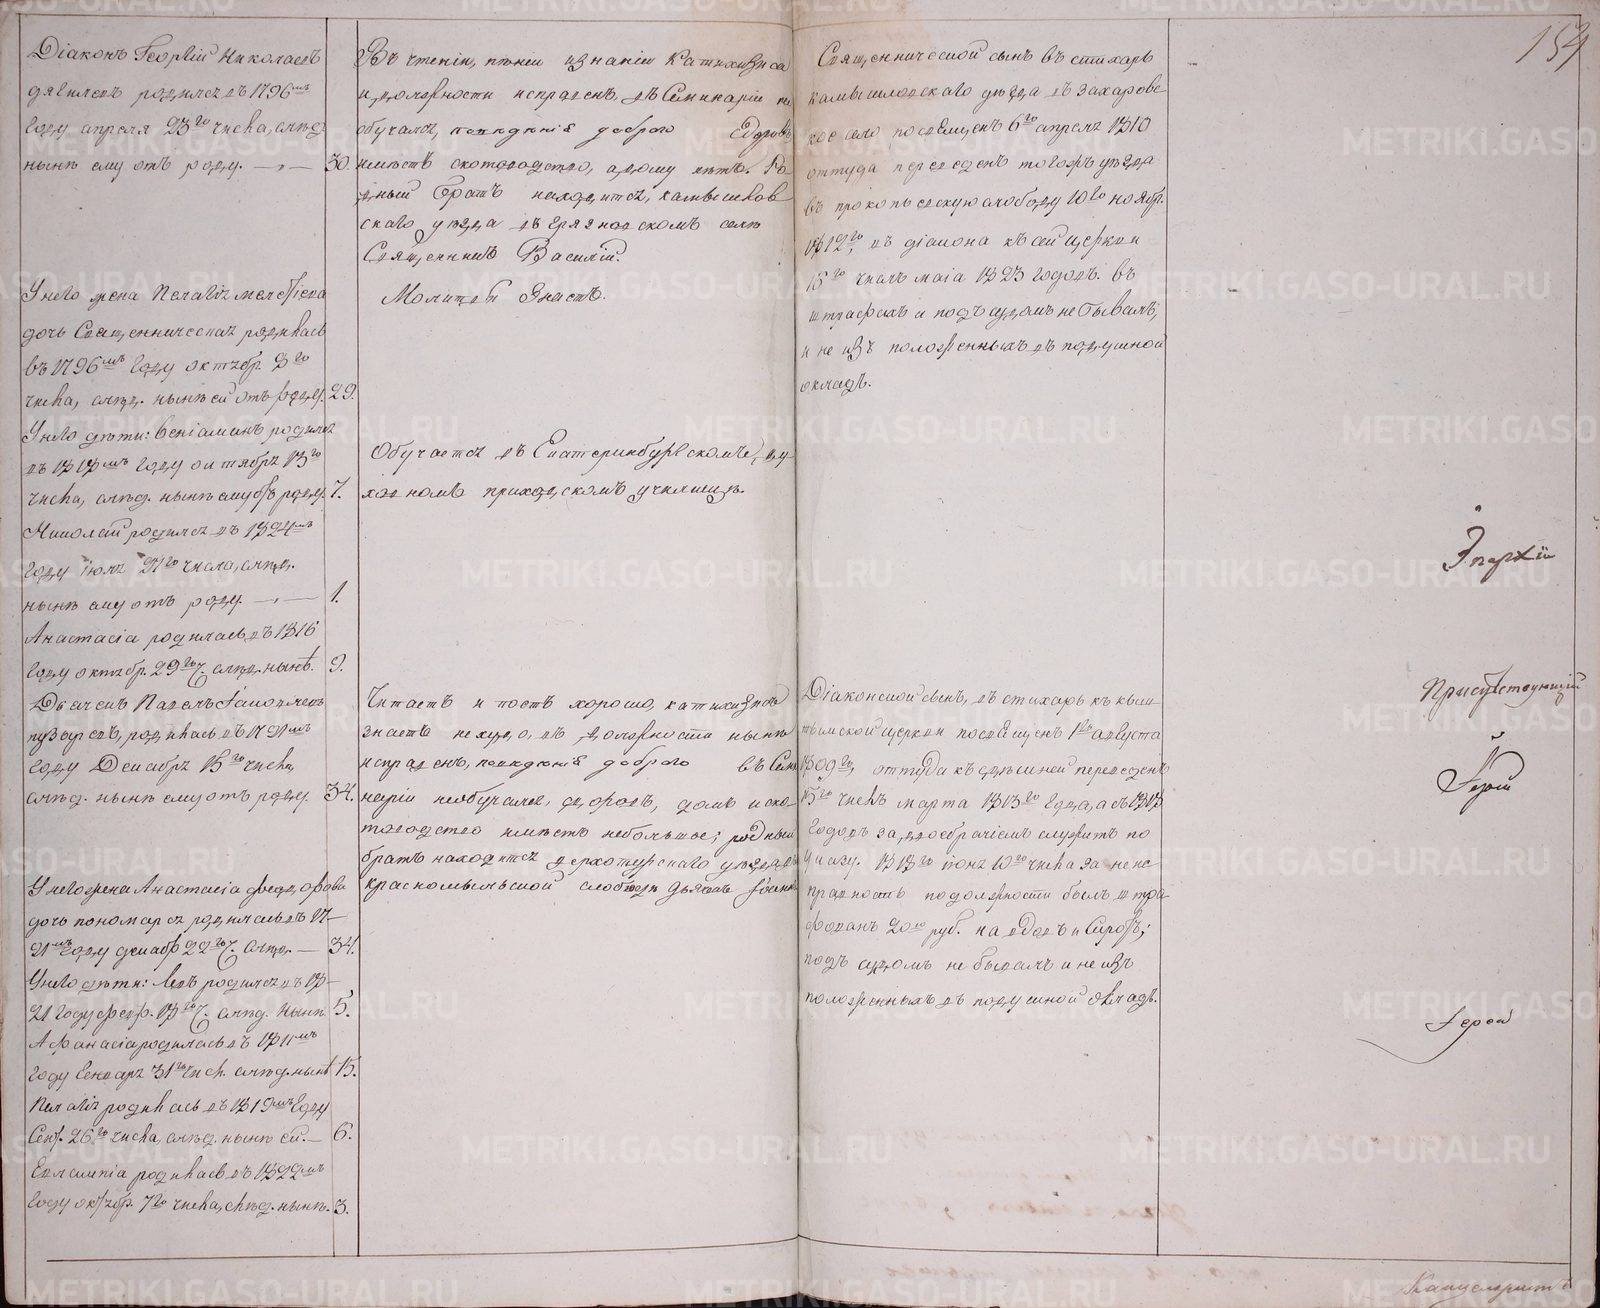 154
Діаконъ Георгій Николаевъ
родился въ 1796мъ
году апреля 23го числа, слѣд.
нынѣ ему отъ роду. 30.
У него жена Пелагія
дочь Священническая родилась
въ 1796мъ году октябр. 8го
числа, слѣд. нынѣ ей отъ роду. 29.
У него дѣти: Веніаминъ родился
въ 1818мъ году октября 13го
числа, слѣд. нынѣ ему отъ роду. 7.
Николай родился въ 1824мъ
году іюля 21го числа, слѣд.
нынѣ ему отъ роду. 1.
Анастасія родилась въ 1816
году октябр. 29го ч. слѣд. нынѣ. 9.
Дьячекъ Павелъ
родился въ 1791мъ
году Декабря 15го числа,
слѣд. нынѣ ему отъ роду. 34.
У него жена Анастасія Федорова
дочь пономаря родилась въ 17
91мъ году декабр 22го ч. слѣд. 34.
У него дѣти: Левъ родился въ 18
21 году февр. 18го ч. слѣд. нынѣ 5.
Афанасія родилась въ 1811мъ
году Генваря 31го числ. слѣд. нынѣ 15.
Пелагія родилась въ 1819мъ году
Сент. 26го числа, слѣд. нынѣ ей. 6.
Евлампія родилась въ 1822мъ
году октябр. 7го числа, слѣд. нынѣ. 3.
Въ чтеніи, пѣніи и знаніи катихизиса
и должности исправенъ, въ Семинаріи не
обучался, поведенія добраго вдоровъ
имѣетъ скотоводство, а дому нѣтъ. Ро
дный братъ находится, камышлов
скаго уѣзда въ Грязновскомъ селѣ
Священникъ Василій.
Молитвы знаетъ.
Обучается въ Екатеринбургскомъ ду
ховномъ приходскомъ училищѣ.
Читаетъ и поетъ хорошо, катихизисъ
знаетъ нехудо, въ должности нынѣ
исправенъ, поведенія добраго въ Семи
наріи необучался, здоровъ, домъ и ско
товодство имѣетъ небольшое; родный
братъ находится верхотурскаго уѣзда въ
краснояльской слободѣ дьячекъ
Священнической сынъ въ стихарь
камышловскаго уѣзда въ Захаровс
кое село посвященъ 6го апреля 1810
оттуда переведенъ тогожъ уѣзда
въ прокопьевскую слободу 10го ноябр.
1812го, въ діакона къ сей церкви
15го числъ маія 1823 годовъ. въ
штрафахъ и подъ судомъ не бывалъ,
и не изъ положенныхъ въ подушной
окладъ.
Діаконской сынъ, въ стихарь къ кыш
тымской церкви посвященъ 1го августа
1809го, оттуда къ здешней переведенъ
15го числъ марта 1813го года, а съ 1818
годовъ за двоебрачіемъ служитъ по
указу. 1813го іюня 10го числа за неис
правность по должности былъ штра
фованъ 20ю руб. на вдовъ и Сиротъ;
подъ судомъ не бывалъ и не изъ
положенныхъ въ подушной окладъ.
Эпархіи
Присутствующій
Іерей
Іерей
METRIKI.GASO-URAL.RU